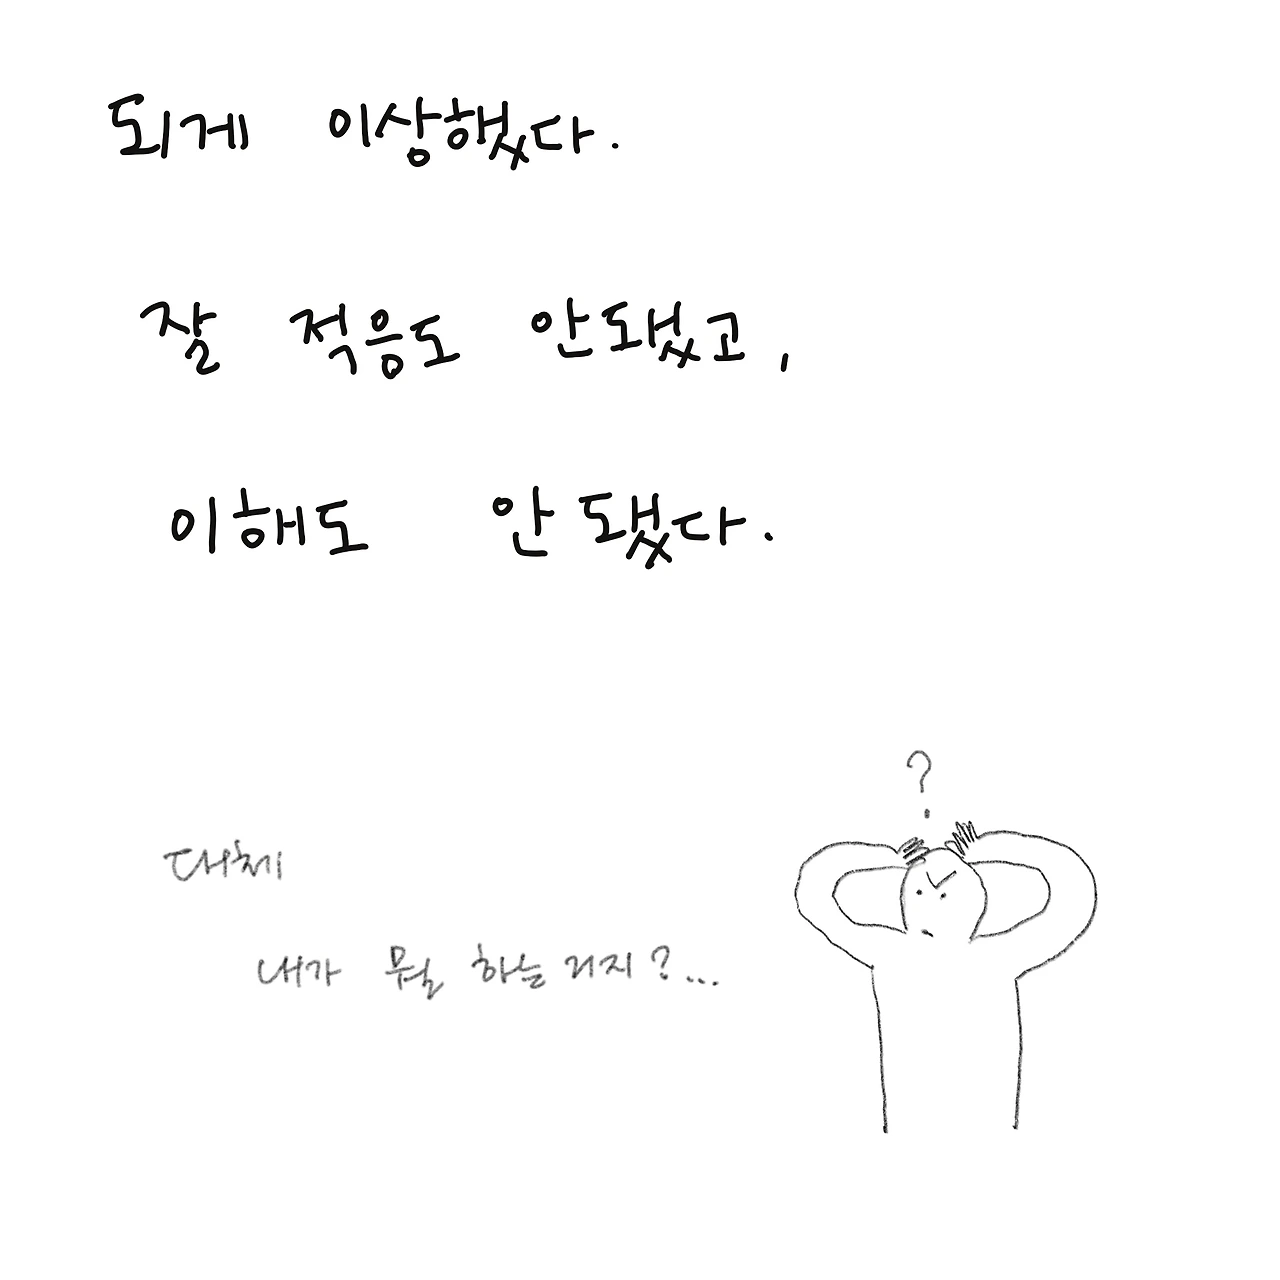 되게 이상했다.
잘 적응도 안됐고,
이해도 안 됐다.
?
대체
내가 뭘 하는 거지?...